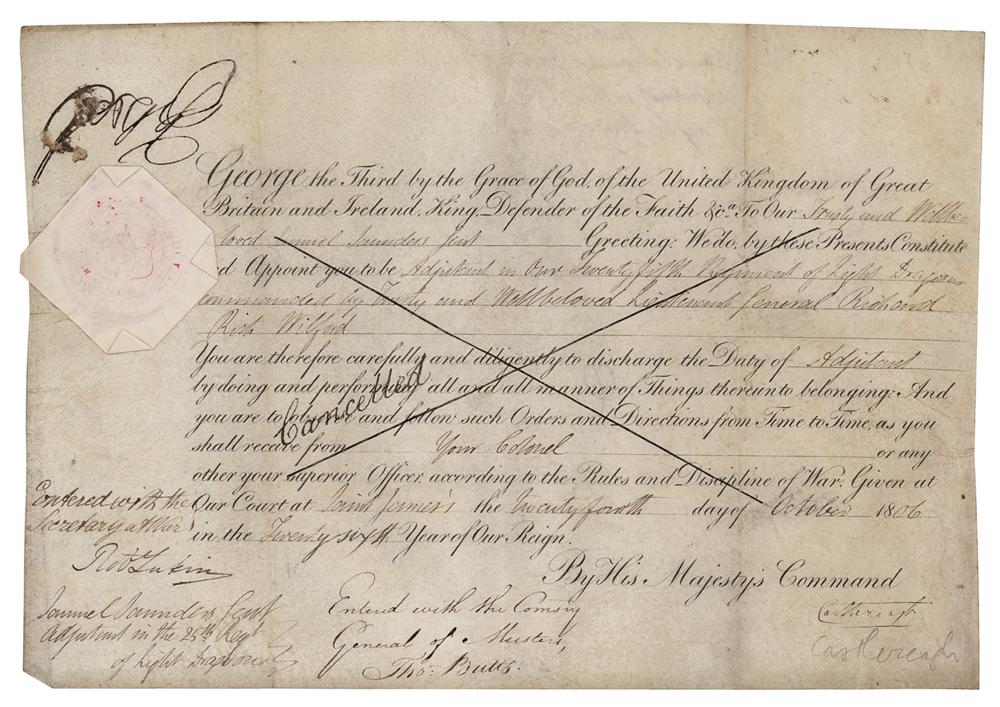 George R
George the Third by the Grace of God, of the United Kingdom of Great
Britain and Ireland, King, Defender of the Faith &c.a To Our Trusty and Wellbe
loved Samuel Saunders Gent Greeting: We do, by these Presents Constitute
and Appoint you to be Adjutant in Our Twenty fifth Regiment of Light Dragoons
commanded by Trusty and Wellbeloved Lieutenant General Richard
Rich Wilford
You are therefore carefully and diligently to discharge the Duty of Adjutant
by doing and performing all and all manner of Things thereunto belonging: And
you are to observe and follow such Orders and Directions from Time to Time, as you
shall receive from Your Colonel or any
other your superior Officer, according to the Rules and Discipline of War. Given at
Our Court at Saint James's the twenty fourth day of October 1806
in the Twenty sixth Year of Our Reign.
By His Majesty's Command
Cancelled
Entered with the
Secretary at War
Rob Lukin
Samuel Saunders Gent
Adjutant in the 25th Regt
of Light Dragoons
Entered with the Comsry
General of Musters,
Tho: Butts.
Castlereagh
Castlereagh